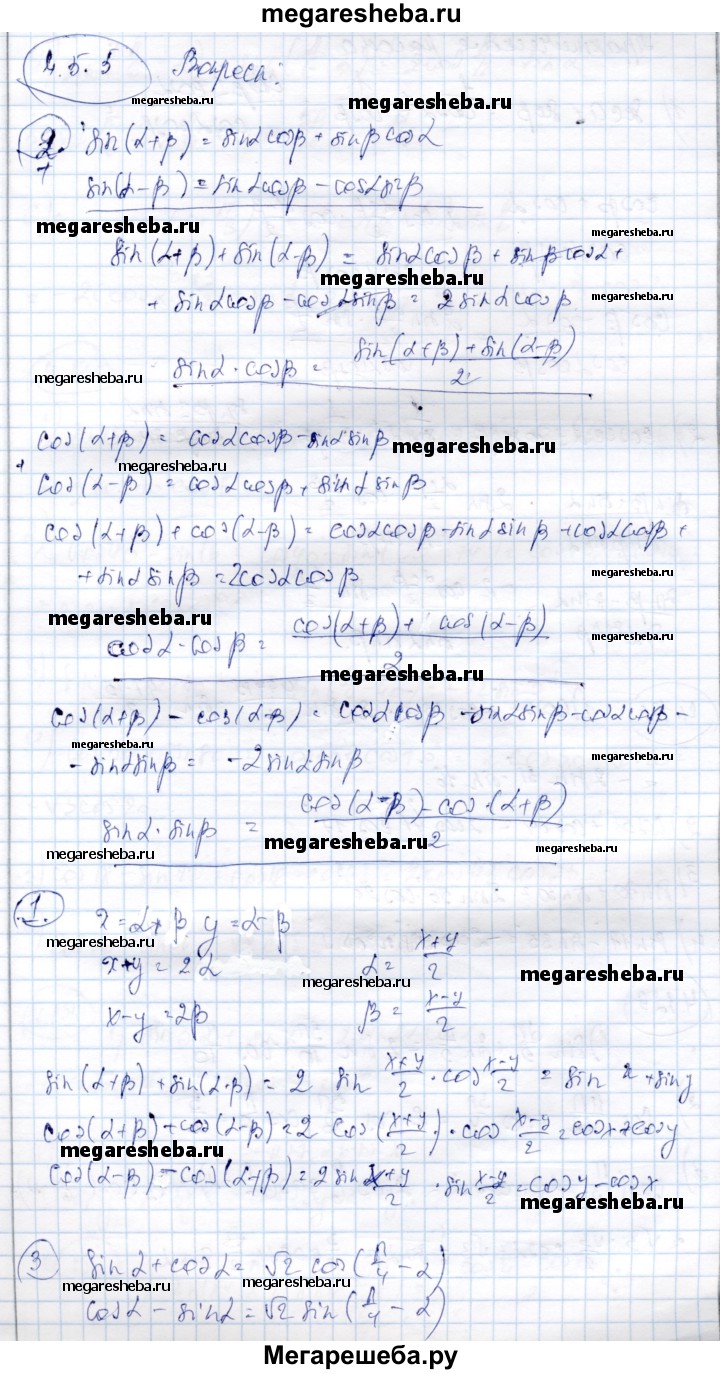 megaresheba.ru
4.5.5 Вопросы:
megaresheba.ru megaresheba.ru
2. sin(α+β) = sinα cosβ + sinβ cosα
sin(α-β) = sinα cosβ - cosα sinβ
megaresheba.ru megaresheba.ru
sin(α+β) + sin(α-β) = sinα cosβ + sinβ cosα +
megaresheba.ru
+ sinα cosβ - cosα sinβ = 2 sinα cosβ
megaresheba.ru
sinα · cosβ = (sin(α+β) + sin(α-β))/2
megaresheba.ru megaresheba.ru
cos(α+β) = cosα cosβ - sinα sinβ
megaresheba.ru megaresheba.ru
cos(α-β) = cosα cosβ + sinα sinβ
megaresheba.ru
cos(α+β) + cos(α-β) = cosα cosβ - sinα sinβ + cosα cosβ +
+ sinα sinβ = 2cosα cosβ
megaresheba.ru
megaresheba.ru
cosα · cosβ = (cos(α+β) + cos(α-β))/2
megaresheba.ru
megaresheba.ru
cos(α+β) - cos(α-β) = cosα cosβ - sinα sinβ - cosα cosβ -
megaresheba.ru megaresheba.ru
- sinα sinβ = -2 sinα sinβ
sinα · sinβ = (cos(α-β) - cos(α+β))/2
megaresheba.ru megaresheba.ru megaresheba.ru
1. x = α+β y = α-β
megaresheba.ru
x+y = 2α α = (x+y)/2
megaresheba.ru megaresheba.ru
x-y = 2β β = (x-y)/2
sin(α+β) + sin(α-β) = 2 sin (x+y)/2 · cos (x-y)/2 = sin x + sin y
cos(α+β) + cos(α-β) = 2 cos((x+y)/2) · cos (x-y)/2 = cosx + cosy
megaresheba.ru
cos(α-β) - cos(α+β) = 2 sin (x+y)/2 · sin (x-y)/2 = cosy - cosx
megaresheba.ru megaresheba.ru
3 sinα + cosα = √2 cos(π/4 - α)
megaresheba.ru megaresheba.ru
cosα - sinα = √2 sin(π/4 - α)
Мегарешеба.ру